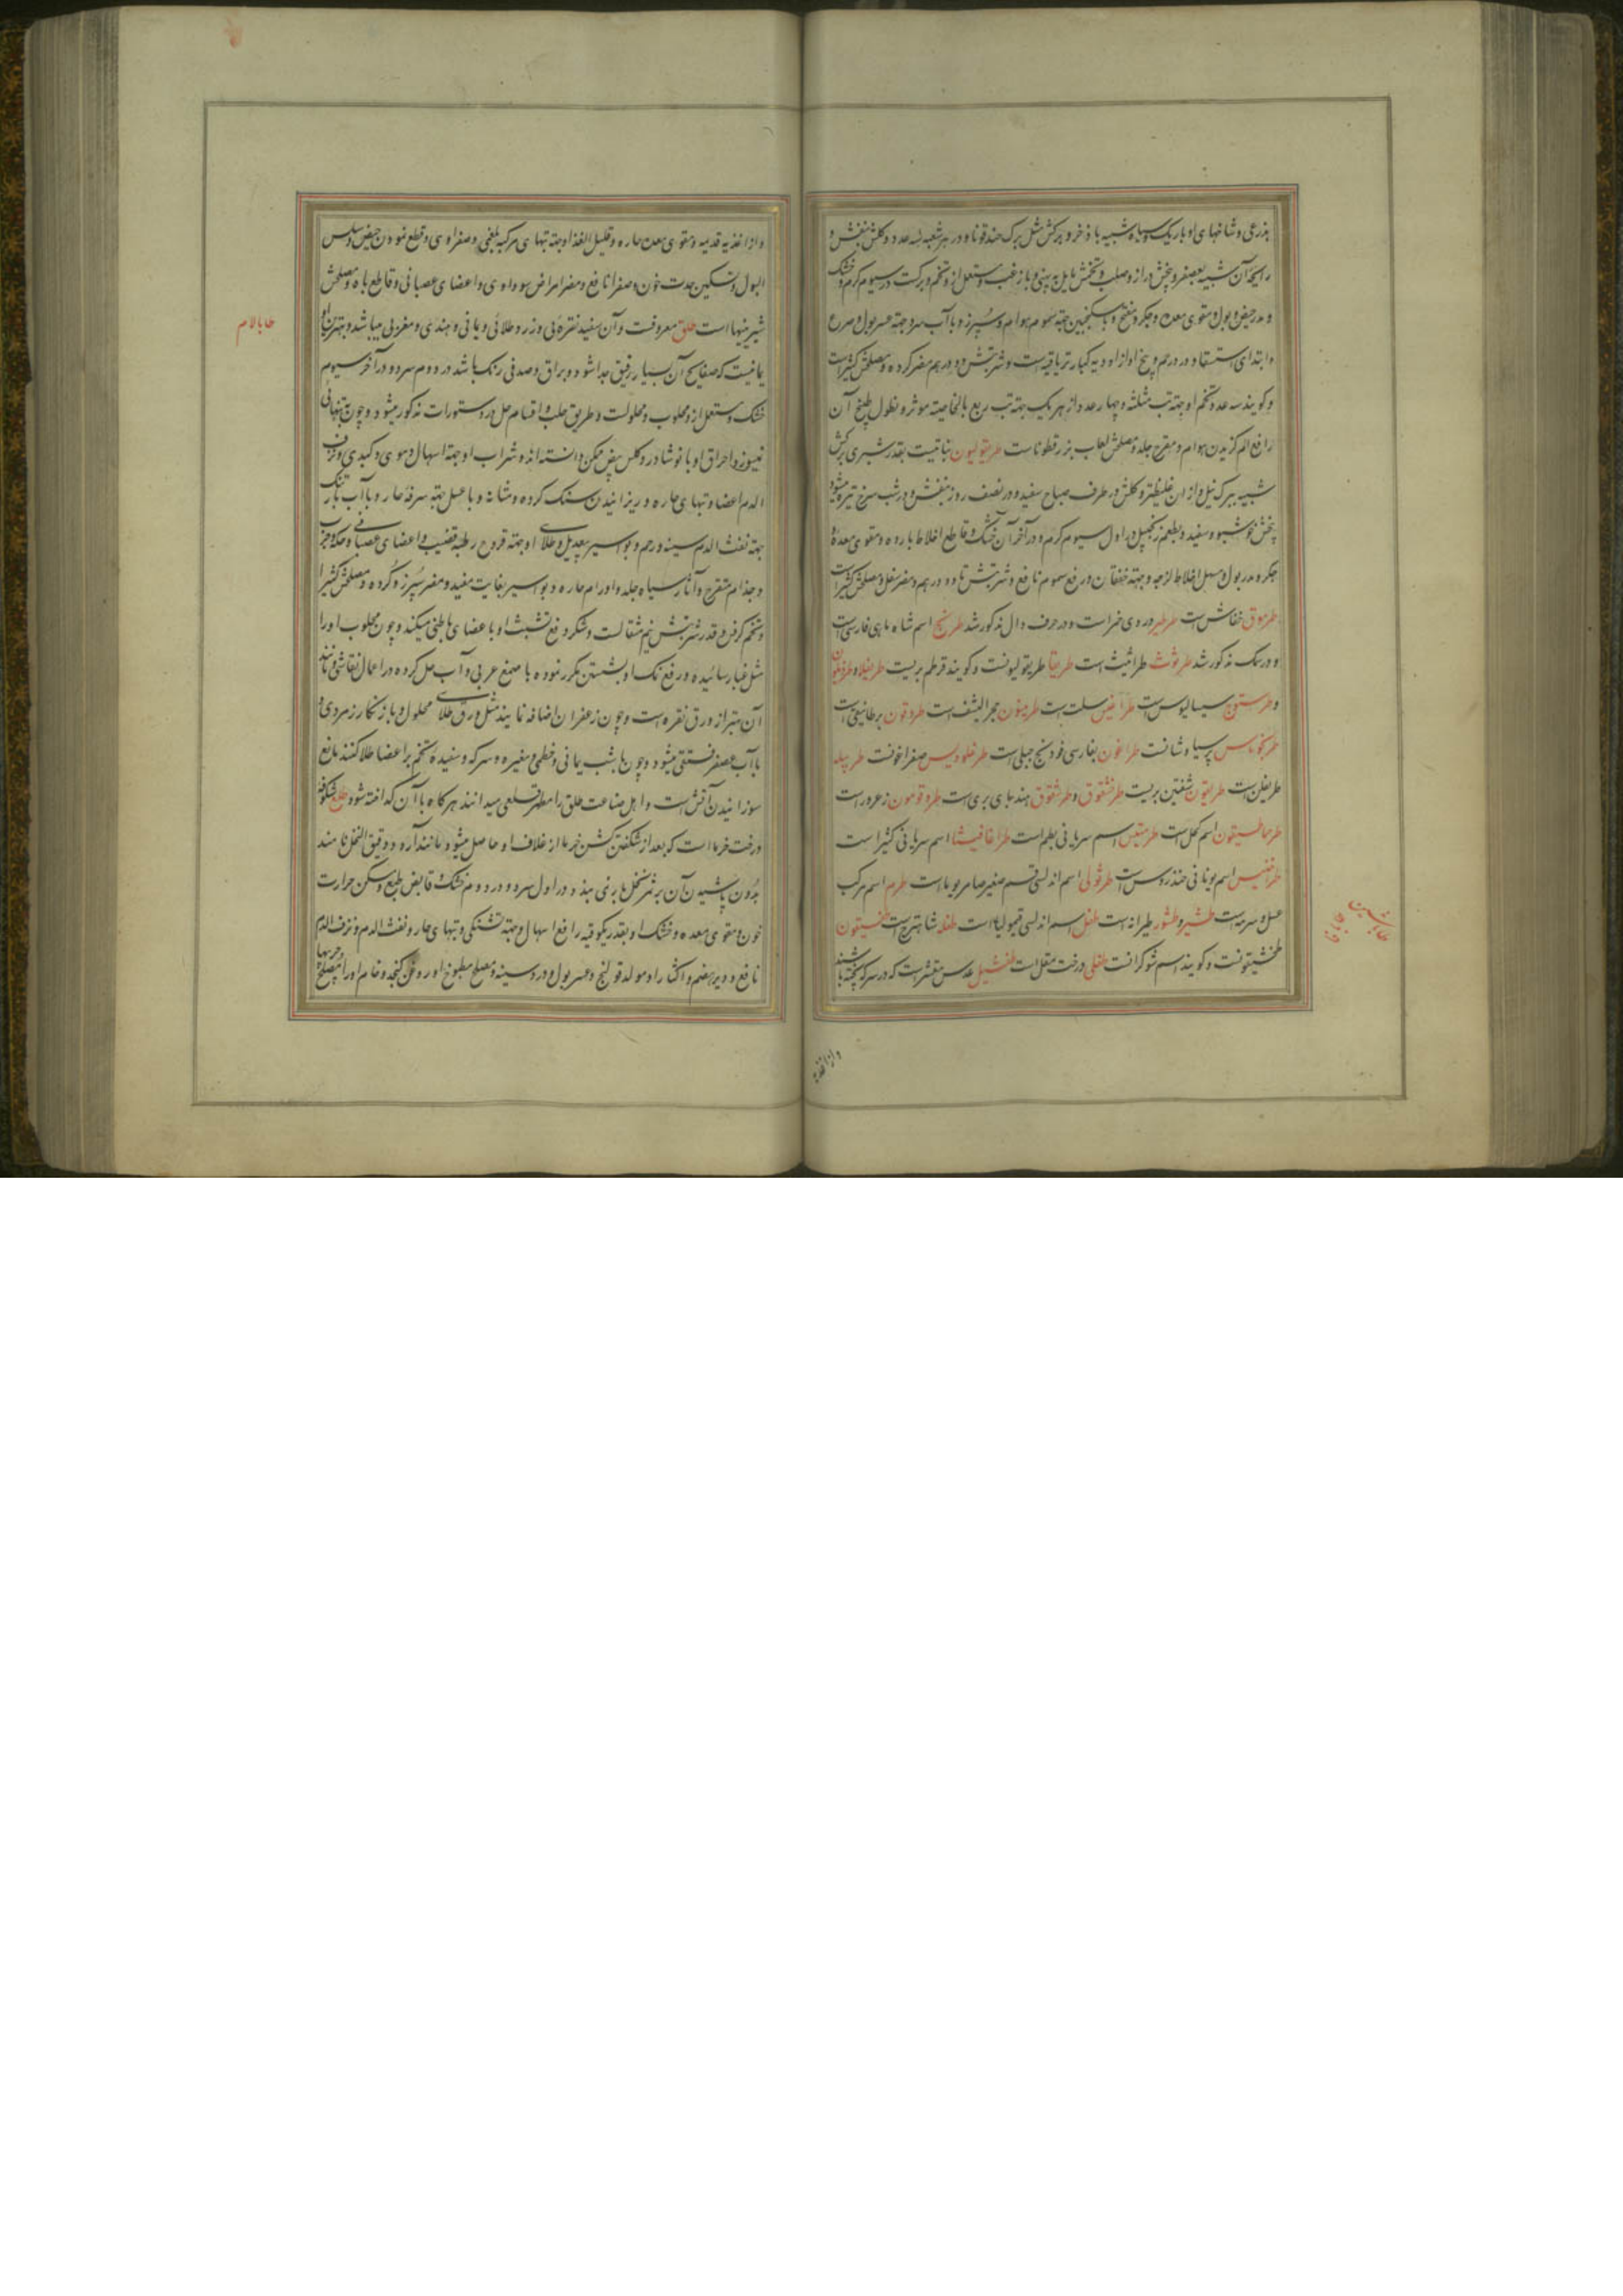 بذرعی و شاخهای او باریک و سیاه شبیه باذخر و برکش مثل برک حندقوقا و در هر شعبه سه عدد و کلش بنفش و
رایحهٔ آن شبیه بعصفر و بیخش دراز و صلب و تخمش مایل به پهنی و با زغب و مستعمل از و تخم و برکست در سیوم کرم و خشک
و مدر حیض و بول و مقوی معده و جکر و مفتح و با سکنجبین جهة سموم هوام و سپرز و با آب سرد جهة عسر بول و صرع
و ابتدای استسقا و درد رحم و بیخ او از ادویه کبار تریاقیست و شربتش دو درهم مضر کرده و مصلحش کثیراست
و کویند سه عدد تخم او جهة تب مثلثه و چهار عدد از هر یک جهة تب ربع بالخاصیة موثر و نطول طبیخ آن
رافع الم کزیدن هوام و مقرح جلد و مصلحش لعاب بزرقطوناست طریفولیون نباتیست بقدر شبری برکش
شبیه ببرک نیل و از ان غلیظتر و کلش در طرف صباح سفید و در نصف روز بنفش و در شب سرخ تیره میشود
بیخش خوشبو و سفید و بطعم زنجبیل در اول سیوم کرم و در آخر آن خشک و قاطع اخلاط بارده و مقوی معده و
جکر و مدر بول و مسهل اخلاط لزجه و جهة خفقان و رفع سموم نافع و شربتش تا دو درهم و مضر سفل و مصلحش کثیراست
طرموق خفاش است طرطیر دردی خمر است و در حرف دال مذکور شد طریخ اسم شاه ماهی فارسی است
و در سمک مذکور شد طرثوث طراثیث است طریقا طریفولیونست و کویند قرطم بریست
سیسالیوس است طراغیس سلت است حجر الیشف است بطانیقی است
پرسیاوشانست طراغون بفارسی فودنج جبلی است صغراغونست
طریفلن است طریغون شفنین بریست طرخشقوق و طرشقوق هندبای بری است زعرور است
اسم کحل است اسم سریانی بطم است طراغاقیشا اسم سریانی کثیراست
اسم یونانی خندروس است طرثولی اسم اندلسی قسم صغیر صامریوما است طرم اسم مرکب
عسل و سرمه است طیرانه است طفل اسم اندلسی قیمولیا است طفله شاهترج است طقسیقون
طخشیقونست و کویند اسم شوکرانست طفلی درخت مقل است طفشیل عدس مقشر است که در سرکه پخته باشند
طا با شین
و از اغذیه
و از اغذیه قدیمه و مقوی معده حاره و قلیل الغذا و جهة تبهای مرکبه بلغمی و صفراوی و قطع نمودن حیض و سلس
البول و تسکین حدت خون و صفرا نافع و مضر امراض سوداوی و اعضای عصبانی و قاطع باه و مصلحش
شیرینیها است طلق معروفست و آن سفید نقره‌یی و زرد طلائی و یمانی و هندی و مغربی میباشد و بهترین او
یمانیست که صفایح آن بسیار رقیق جدا شود و براق و صدفی رنک باشد در دوم سرد و در آخر سیوم
خشک و مستعمل از و محلوب و محلولست و طریق حلب و اقسام حل در دستورات مذکور میشود و چون بتنهائی
نمیسوزد احراق او با نوشادر و کلس بیض ممکن دانسته‌اند و شراب او جهة اسهال دموی و کبدی و نزف
الدم اعضا و تبهای حاره و ریزانیدن سنک کرده و مثانه و با عسل جهة سرفه حار و با آب بارتنک
جهة نفث الدم سینه و رحم و بواسیر بیعدیل و طلای او جهة قروح رطبه قضیب و اعضای عصبانی و حکه و جرب
و جذام متقرح و آثار سیاه جلد و اورام حاره و بواسیر بغایت مفید و مضر سپرز و کرده و مصلحش کثیرا
و تخم کرفس و قدر شربتش نیم مثقالست و شکر دفع تشبث او باعضای باطنی میکند و چون محلوب او را
مثل غبار سائیده و رفع نمک او بشستن مکرر نموده با صمغ عربی و آب حل کرده در اعمال نقاشی و مانند
آن بهتر از ورق نقره است و چون زعفران اضافه نمایند مثل ورق طلای محلول و با زنکار زمردی و
با آب عصفر فستقی میشود و چون با شب یمانی و خطمی و مغیره و سرکه و سفیده تخم بر اعضا طلا کنند مانع
سوزانیدن آتش است و اهل صناعت طلق را مطهر قلعی میدانند هر کاه با آن کداخته شود طلع شکوفه
درخت خرما است که بعد از شکفتن کشن خرما از غلاف او حاصل میشود مانند آرد و دقیق النخل نامند
بدون پاشیدن آن بر ثمر نخل بار نمی بندد در اول سرد و در دوم خشک و قابض طبع و مسکن حرارت
خون و مقوی معده و خشک او بقدر یکوقیه رافع اسهال و جهة تشنکی و تبهای حار و نفث الدم و نزف الدم
نافع و دیر هضم و اکثار او مولد قولنج و عسر بول و درد سینه و مصلح مطبوخ او روغن کنجد و خام او را مصلح
طا با لام